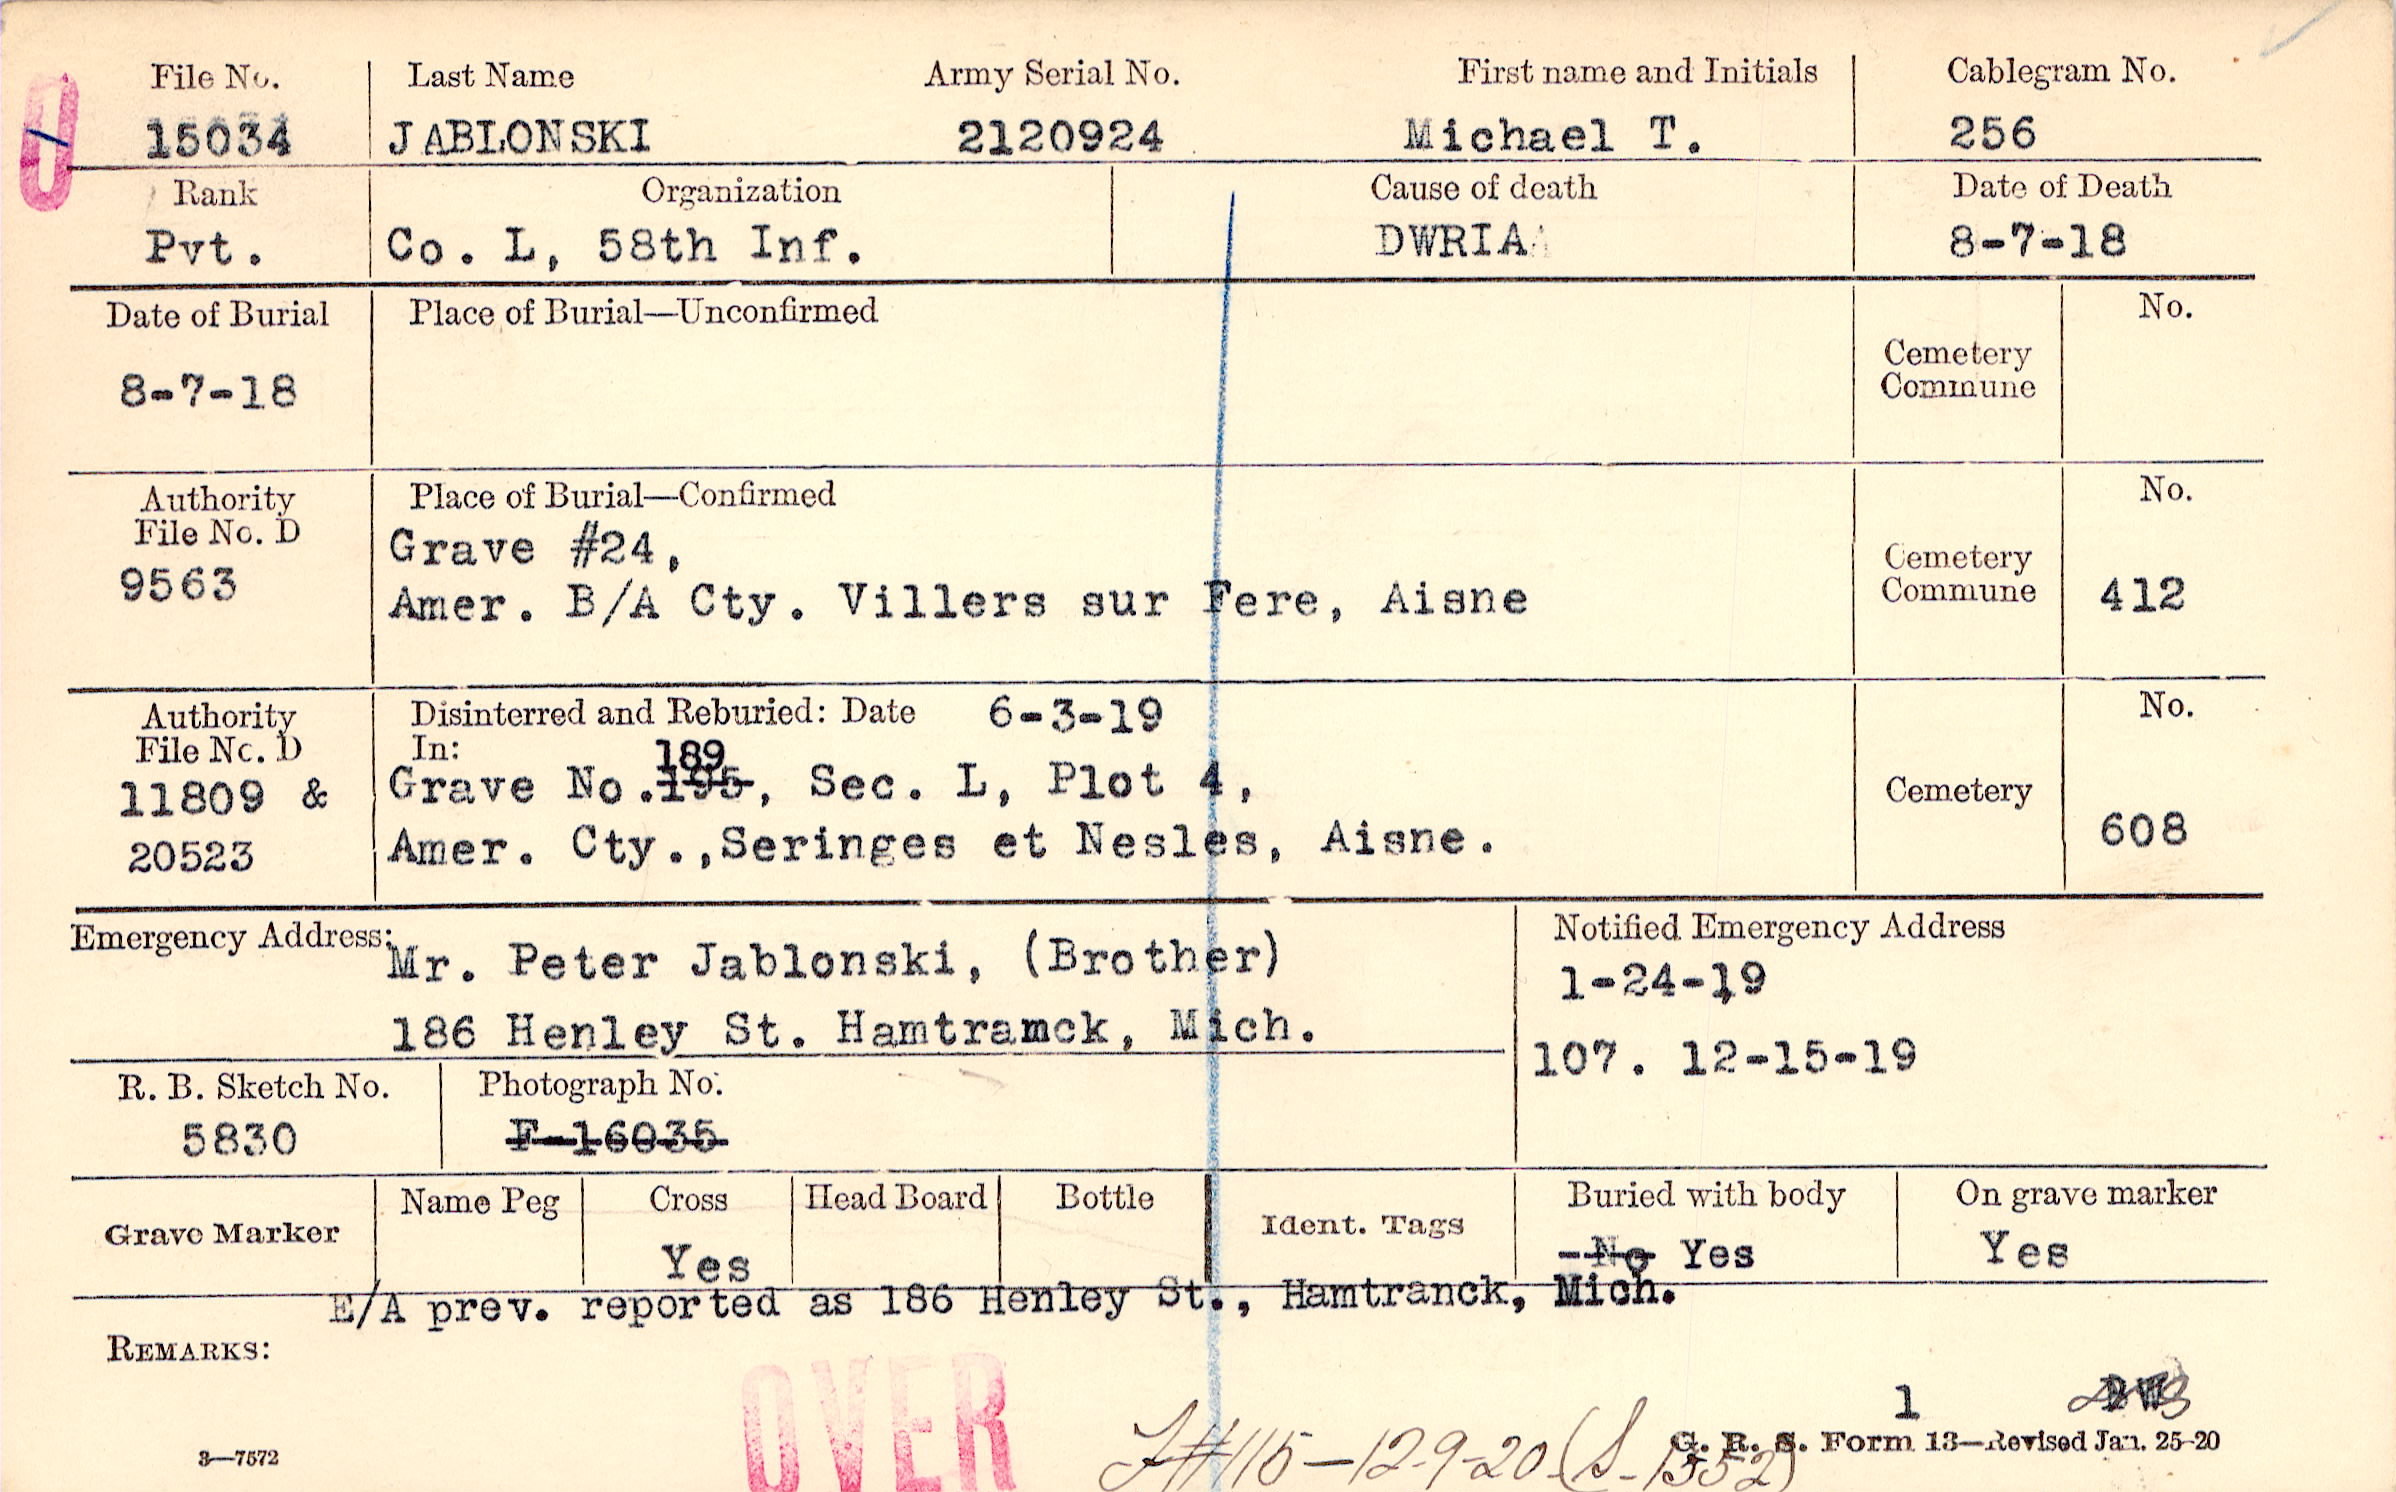 File No. Last Name Army Serial No. First name and Initials Cablegram No.
15034 JABLONSKI 2120924 Michael T. 256
Rank Organization Cause of death Date of Death
Pvt. Co. L, 58th Inf. DWRIA 8-7-18
Date of Burial Place of Burial—Unconfirmed No.
Cemetery
Commune
8-7-18
Authority Place of Burial—Confirmed No.
File No. D Grave #24,
9563 Amer. B/A Cty. Villers sur Fere, Aisne Cemetery
Commune 412
Authority Disinterred and Reburied: Date 6-3-19 No.
File No. D In: 189
11809 & Grave No. 195, Sec. L, Plot 4, Cemetery
20523 Amer. Cty.,Seringes et Nesles, Aisne. 608
Emergency Address: Mr. Peter Jablonski, (Brother) Notified Emergency Address
1-24-19
186 Henley St. Hamtramck, Mich. 107. 12-15-19
R. B. Sketch No. Photograph No.
5830 F-16035
Grave Marker Name Peg Cross Head Board Bottle Ident. Tags Buried with body On grave marker
Yes No Yes Yes
E/A prev. reported as 186 Henley St., Hamtranck, Mich.
REMARKS:
OVER
1
3—7572 G. R. S. Form 13—Revised Jan. 25-20
#115-12-9-20